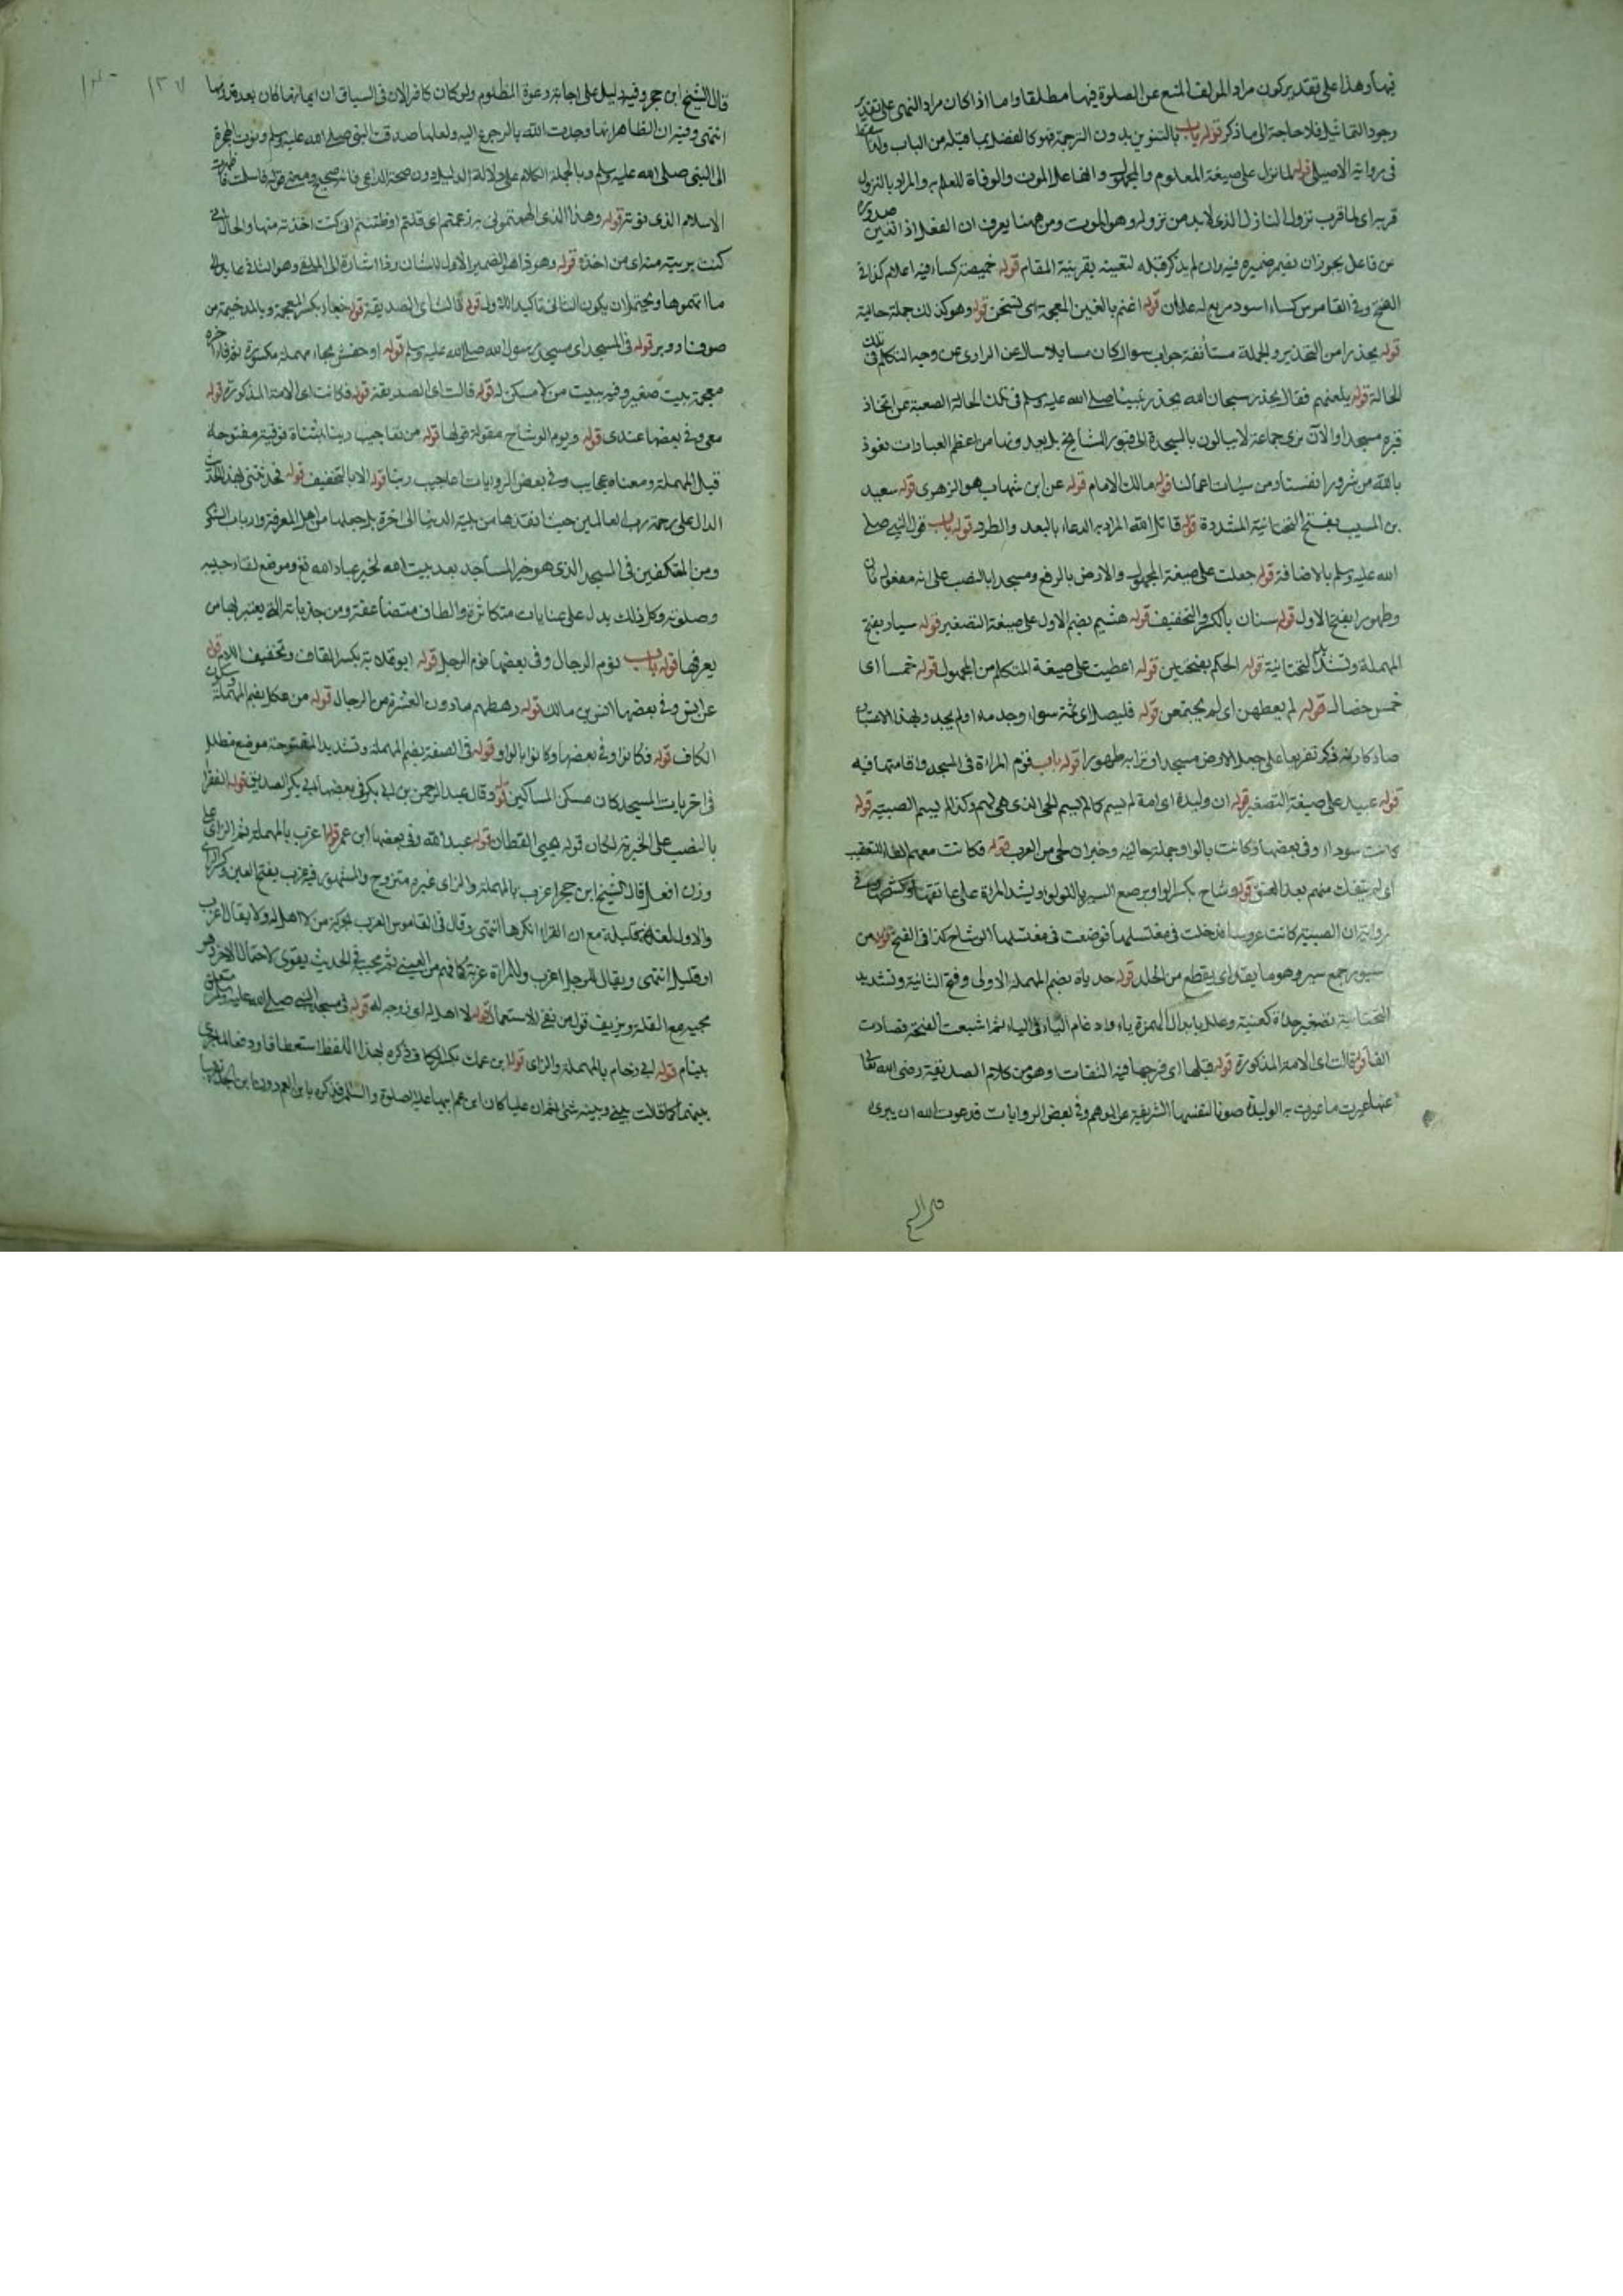 فيها وهذا على تقدير كون مراد المؤلف المنع عن الصلوة فيها مطلقا واما اذا كان مراد النهى على تقدير
وجود التماثيل فلا حاجة الى ما ذكر قوله باب بالتنوين بدون الترجمة فهو كالفصل بما قبله من الباب
فى رواية الاصيلى قوله لما نزل على صيغة المعلوم والمجهول والفاعل الموت والوفاة للعلم به والمراد بالنزول
قربه اى لما قرب نزول النازل الذى لابد من نزوله وهو الموت ومن ههنا يعرف ان الفعل اذا تعين صدوره
عن فاعل يجوز ان يضمر ضميره فيه وان لم يذكر قبله لتعينه بقرينة المقام قوله خميصة كساء فيه اعلام كذا فى
الفتح وفى القاموس كساء اسود مربع له علمان قوله اغتم بالغين المعجمة اى تسخن قوله وهو كذلك جملة حالية
قوله يحذر ما من التحذير والجملة مستأنفة جواب سوال كان سايلا سال عن الراوى عن وجه التكلم فى تلك
الحالة قوله يلعنهم فقال يحذر سبحان الله يحذر نبينا صلى الله عليه وسلم فى تلك الحالة الصعبة عن اتخاذ
قبره مسجدا والآن نرى جماعة لا يبالون بالسجدة الى قبور المشايخ بل يعدونها من اعظم العبادات نعوذ
بالله من شرور انفسنا ومن سيات اعمالنا قوله مالك الامام قوله عن ابن شهاب هو الزهرى قوله سعيد
بن المسيب بفتح التحتانية المشددة قوله قاتل الله المراد به الدعاء بالبعد والطرد قوله باب قول النبى صلى
الله عليه وسلم بالاضافة قوله جعلت على صيغة المجهول والارض بالرفع ومسجدا بالنصب على انه مفعول ثان
وطهورا بفتح الاول قوله سنان بالكسر والتخفيف قوله هشيم بضم الاول على صيغة التصغير قوله سيار بفتح
المهملة وتشديد التحتانية قوله الحكم بفتحتين قوله اعطيت على صيغة المتكلم من المجهول قوله خمسا اى
خمس خصال قوله لم يعطهن اى لم يجتمعن قوله فليصل اى ثمة سواء وجد ماء او لم يجد وبهذا الاعتبار
صار كانه ذكر تفريعا على جعل الارض مسجدا وترابه طهورا قوله باب نوم المراة فى المسجد واقامتها فيه
قوله عبيد على صيغة التصغير قوله ان وليدة اى امة لم يسم كما لم يسم الحى الذى هى لهم وكذا لم يسم الصبية قوله
كانت سوداء وفى بعضها وكانت بالواو جملة حالية وخبر ان لحى من العرب قوله فكانت معهم الفاء للتعقيب
اى لم ينفك منهم بعد العتق قوله وشاح بكسر الواو يرصع السير باللولو ويشد المراة على عاتقها وكشحها وفى
رواية ان الصبية كانت عروسا فدخلت فى مغتسلها فوضعت فى مغتسلها الوشاح كذا فى الفتح قوله من
سيور جمع سير وهو ما يقد اى يقطع من الجلد قوله حدياة بضم المهملة الاولى وفتح الثانية وتشديد
التحتانية تصغير حداة كعنبة وعلل بابدال الهمزة ياء وادغام الياء فى الياء ثم اشبعت الفتحة فصارت
الفا قوله قالت اى الامة المذكورة قوله قبلها اى فرجها فيه التفات وهو من كلام الصديقة رضى الله تعالى
عنها عبرت ما عبرت به الوليدة صونا لنفسها الشريفة عن الوهم وفى بعض الروايات فدعوت الله ان يبرى
قال الشيخ ابن حجر وفيه دليل على اجابة دعوة المظلوم ولو كان كافرا لان فى السياق ان ايمانها كان بعد قدومها
انتهى وفيه ان الظاهر انها وجدت الله بالرجوع اليه ولعلها صدقت النبى صلى الله عليه وسلم ونوت الهجرة
الى النبى صلى الله عليه وسلم وبالجملة الكلام على دلالة الدليل دون صحة الداعى فانه صحيح ومعنى قوله فاسلمت
الاسلام الذى نوته قوله وهذا الذى اتهمتمونى به زعمتم اى قلتم او ظننتم انى كنت اخذته منها والحال انى
كنت بريئة منه اى من اخذه قوله وهو ذا هو الضمير الاول للشان وذا اشارة الى
ما اتهموها ويحتمل ان يكون الثانى تاكيدا للاول قوله قالت اى الصديقة قوله خباء بكسر المعجمة وبالمد خيمة من
صوف او وبر قوله فى المسجد اى مسجد رسول الله صلى الله عليه وسلم قوله او حفش بحاء مهملة مكسورة
معجمة بيت صغير وفيه مبيت من لا مسكن له قوله قالت اى الصديقة قوله فكانت اى الامة المذكورة قوله
معى وفى بعضها عندى قوله ويوم الوشاح مقولة قولها قوله من تعاجيب ربنا بمثناة فوقية مفتوحة
قبل المهملة ومعناه عجايب وفى بعض الروايات اعاجيب ربنا قوله الا بالتخفيف قوله فحدثتنى بهذا الحديث
الدال على رحمة رب العالمين حيث انقذها من بلية الدنيا الى اخره بل جعلها من اهل المعرفة وارباب الشكر
ومن المعتكفين فى المسجد الذى هو خير المساجد بعد بيت الله لخير عباد الله
وصلوته وكل ذلك يدل على عنايات متكاثرة والطاف متضاعفة ومن جذبات الهية يعتبر بها من
يعرفها قوله باب نوم الرجال وفى بعضها نوم الرجل قوله ابو قلابة بكسر القاف وتخفيف اللام قوله
عن انس وفى بعضها انس بن مالك قوله رهط هم ما دون العشرة من الرجال قوله من عكل بضم المهملة وسكون
الكاف قوله فكانوا وفى بعضها وكانوا بالواو قوله فى الصفة بضم المهملة وتشديد المفتوحة موضع مظلل
فى اخريات المسجد كان مسكن المساكين قوله وقال عبد الرحمن بن ابى بكر وفى بعضها ابى بكر الصديق قوله الفقراء
بالنصب على الخبرية لكان قوله يحيى القطان قوله عبد الله وفى بعضها ابن عمر قوله اعزب بالمهملة ثم الزاى على
وزن افعل قال الشيخ ابن حجر اعزب بالمهملة والزاى غير متزوج والمشهور فيه عزب بفتح العين وكسر الزاى
والاول لغة قليلة مع ان القزاز انكرها انتهى وقال فى القاموس العزب محركة من لا اهل له ولا يقال اعزب
او قليل انتهى ويقال للرجل اعزب وللمراة عزبة
مجيئه مع القلة ويزيف قول من نفى الاستعمال قوله لا اهل له اى زوجه له قوله فى مسجد النبى صلى الله عليه وسلم متعلق
بينام قوله ابى حازم بالمهملة والزاى قوله ابن عمك
بينهما كما قالت بينى وبينه شئ